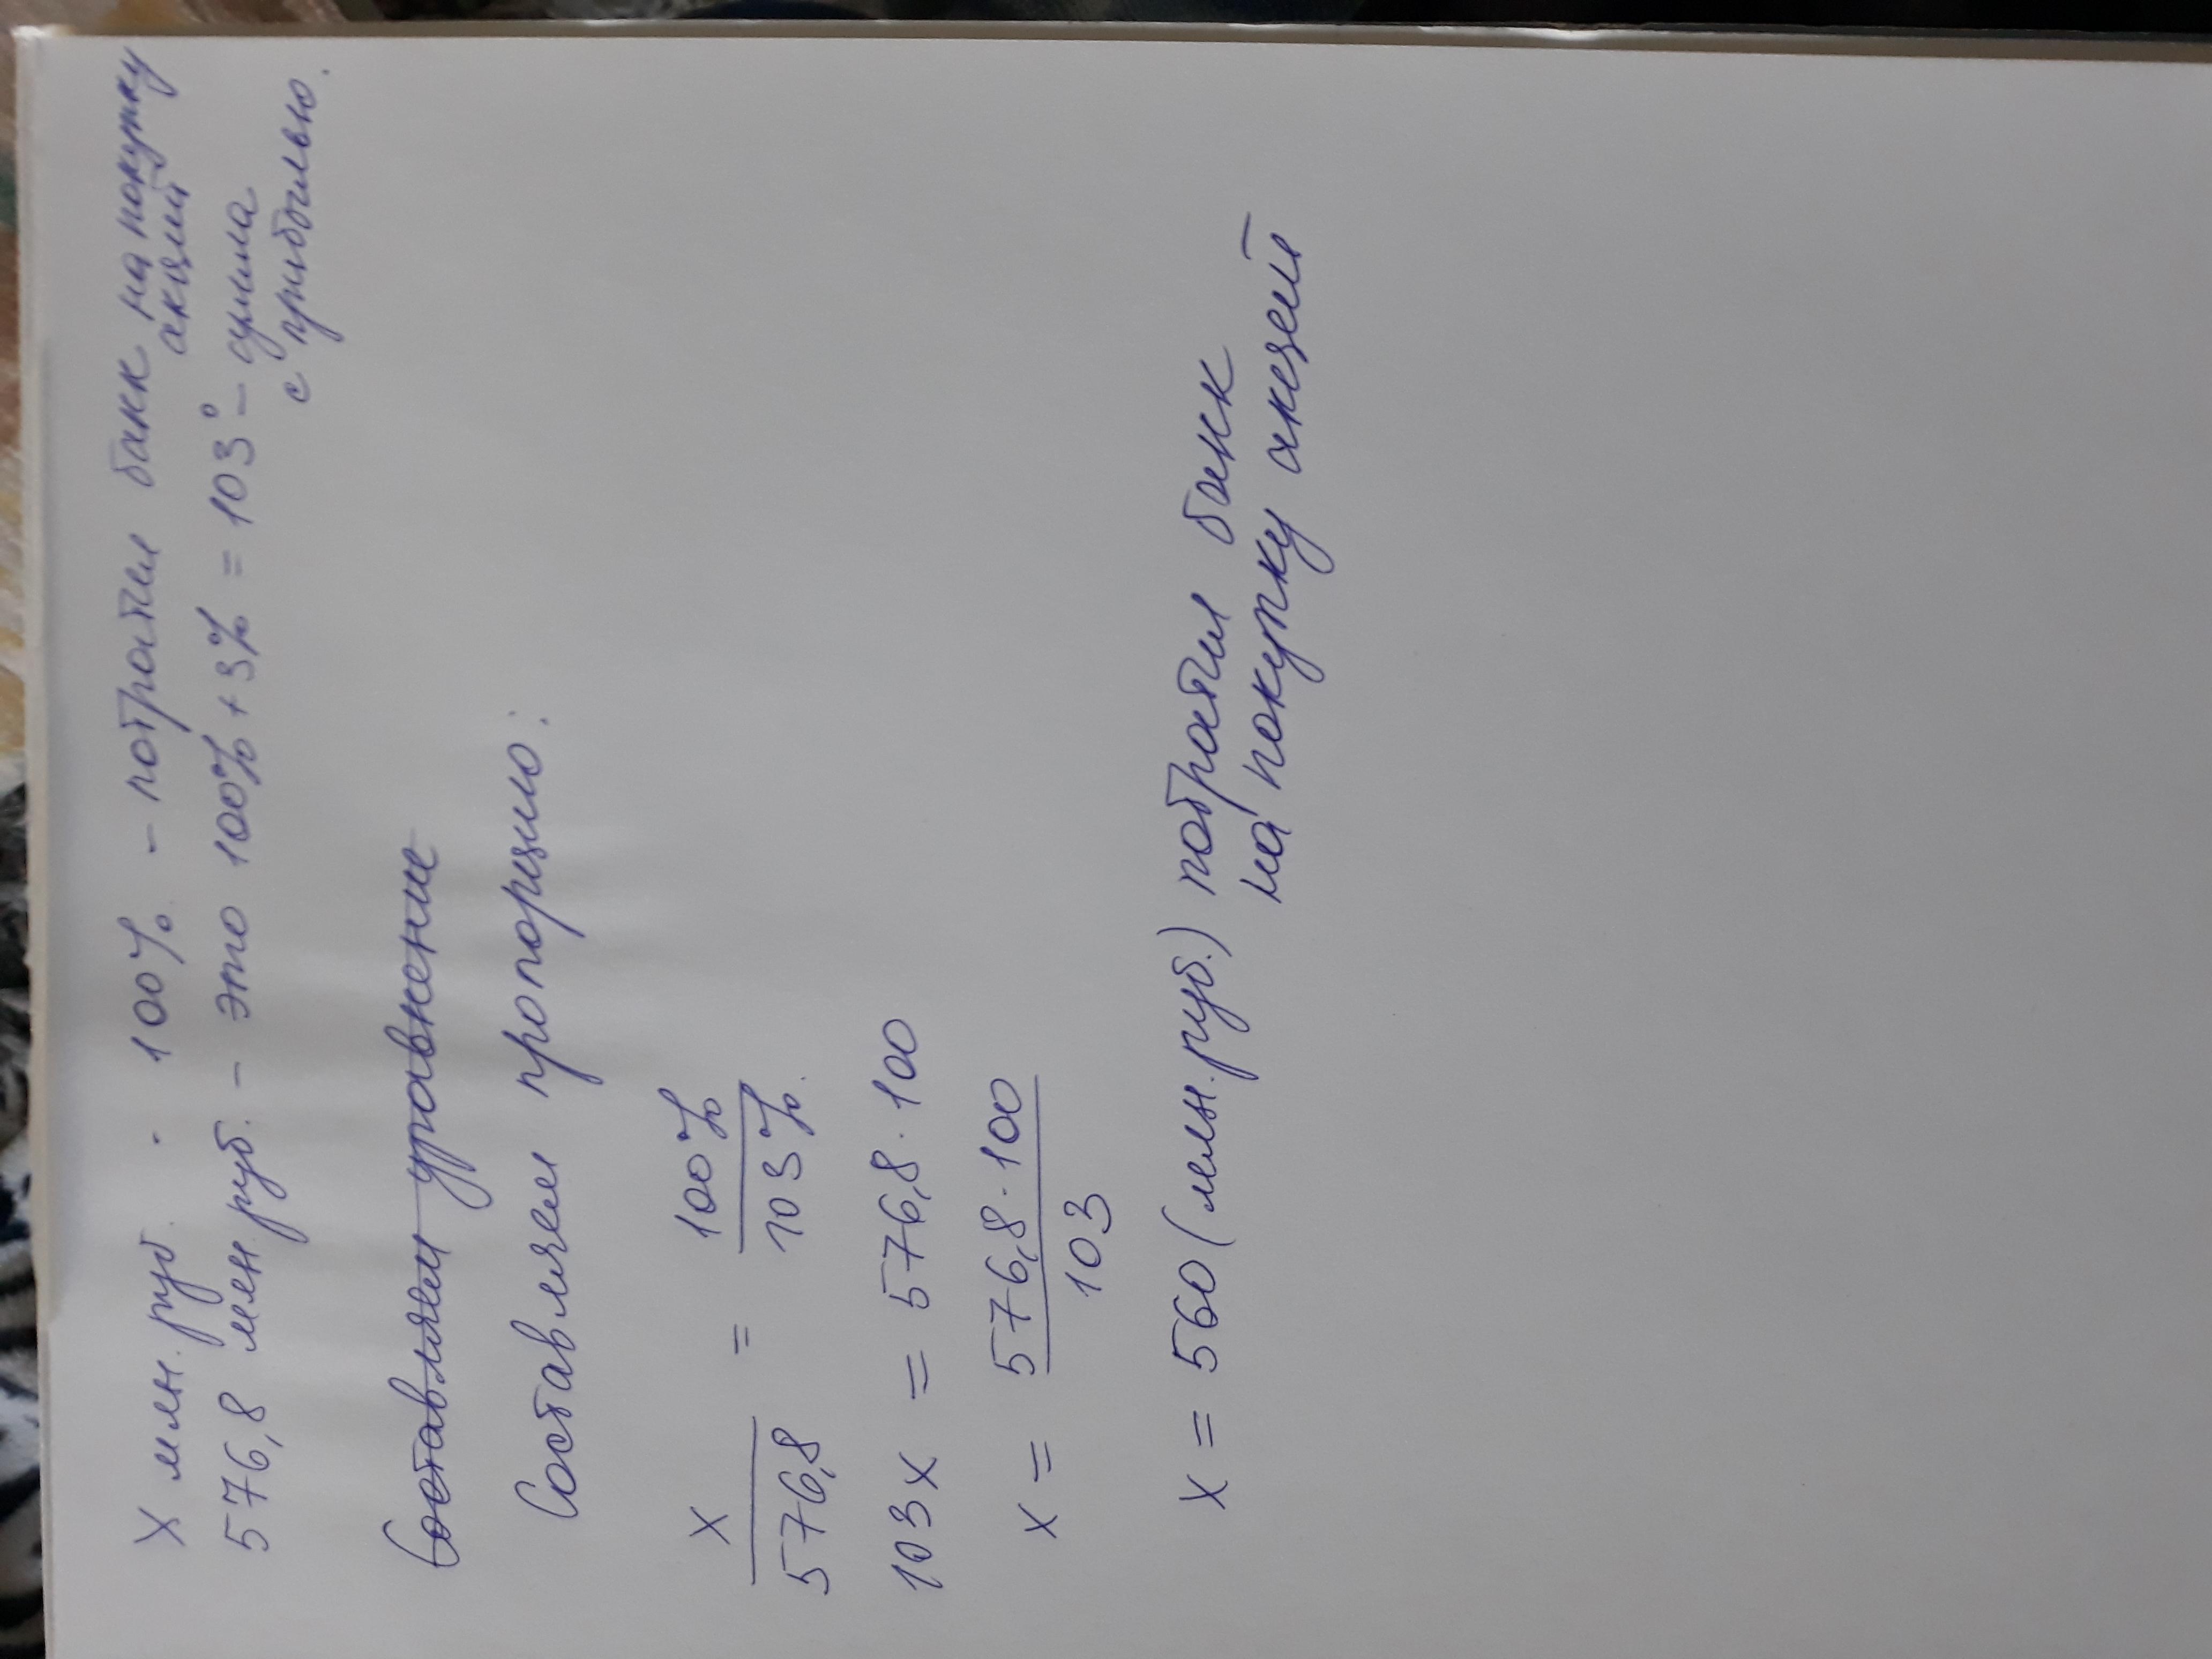 X млн. руб. - 100% - потратил банк на покупку акций
576,8 млн. руб. - это 100% + 3% = 103% - сумма с прибылью.
Составляем уравнение
Составляем пропорцию:
x / 576,8 = 100% / 103%
103x = 576,8 · 100
x = 576,8 · 100 / 103
x = 560 (млн. руб.) потратил банк
на покупку акций